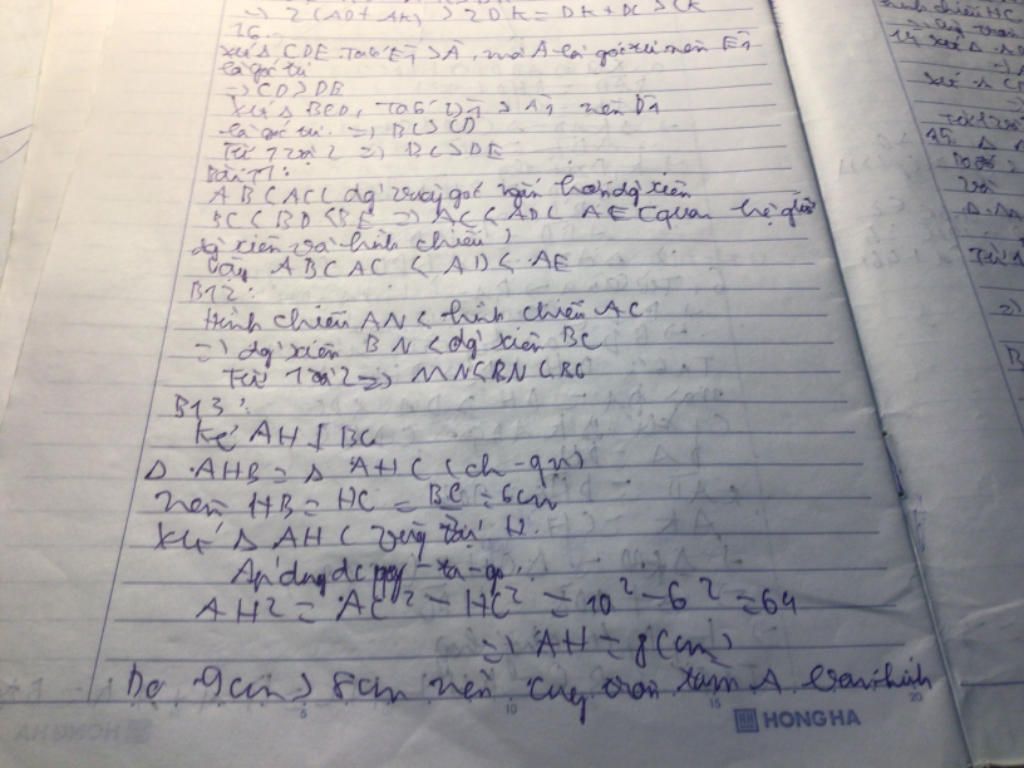 => 2(AD + AK) > 2DK = DK + DC > CK
16.
xét Δ CDE. Ta có Ê1 > Â, mà Â là góc tù nên Ê1
là góc tù
=> CD > DE
xét Δ BCD, Ta có D̂1 > Â1 nên D̂1
là góc tù. => BC > CD
Từ 1 và 2 => BC > DE
Bài 11:
AB < AC ( đg vuông góc ngắn hơn đg xiên
BC < BD < BE => AC < AD < AE (quan hệ giữa
đg xiên và hình chiếu)
Vậy AB < AC < AD < AE
B12:
Hình chiếu AN < hình chiếu AC
=> đg xiên BN < đg xiên BC
Từ 1 và 2 => MN < BN < BC
B13:
Kẻ AH ⊥ BC
Δ AHB = Δ AHC (ch - gn)
nên HB = HC = BC/2 = 6cm
xét Δ AHC vuông tại H.
Áp dụng đl py - ta - go.
AH² = AC² - HC² = 10² - 6² = 64
=> AH = 8(cm)
Do 9cm > 8cm nên cung tròn tâm A bán kính
5 10 15 20
HONG HA
hình chiếu HC